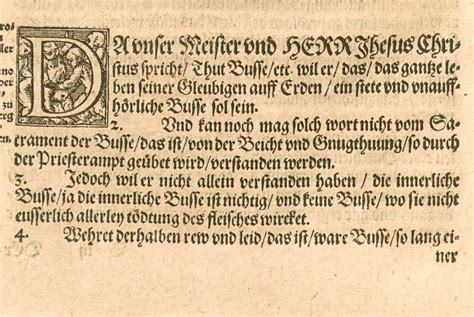 DA vnser Meister vnd HERR Jhesus Chri-
stus spricht / Thut Busse / etc. wil er / das / das gantze le-
ben seiner Gleubigen auff Erden / ein stete vnd vnauff-
hörliche Busse sol sein.
2. Vnd kan noch mag solch wort nicht vom Sa-
crament der Busse / das ist / von der Beicht vnd Gnugthuung / so durch
der Priesterampt geübet wird / verstanden werden.
3. Jedoch wil er nicht allein verstanden haben / die innerliche
Busse / ja die innerliche Busse ist nichtig / vnd keine Busse / wo sie nicht
eusserlich allerley tödtung des fleisches wircket.
4. Wehret derhalben rew vnd leid / das ist / ware Busse / so lang ei-
ner